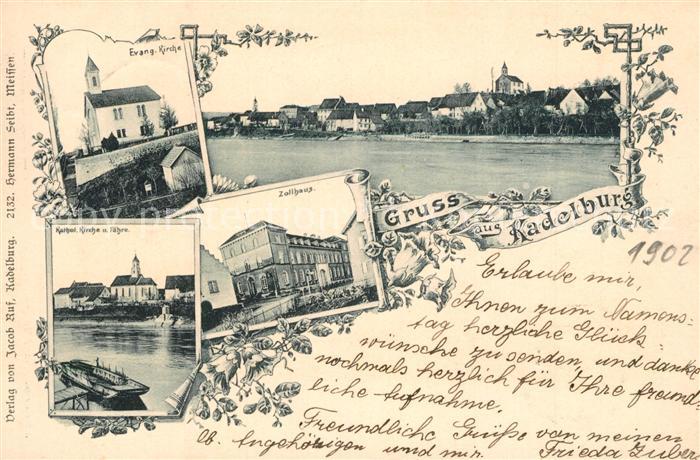 Evang. Kirche
Zollhaus.
Kathol. Kirche u. Fähre.
Gruss
aus Kadelburg
1902
Erlaube mir,
Ihnen zum Namens-
tag herzliche Glück-
wünsche zu senden, und danke
nochmals herzlich für Ihre freund-
liche Aufnahme.
Freundliche Grüße von meinen
lb. Angehörigen und mir. Frieda Huber
Verlag von Jacob Ruf, Kadelburg. 2132. Hermann Seibt, Meissen